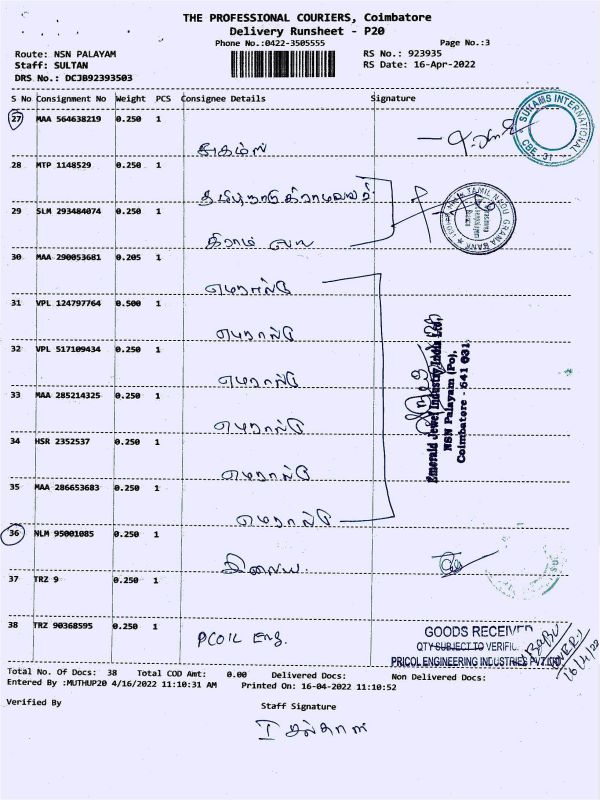 THE PROFESSIONAL COURIERS, Coimbatore
Delivery Runsheet - P20
Phone No.:0422-3505555
Page No.:3
Route: NSN PALAYAM
Staff: SULTAN
DRS No.: DCJB92393503
RS No.: 923935
RS Date: 16-Apr-2022
S No Consignment No Weight PCS Consignee Details Signature
27 MAA 564638219 0.250 1
SUKAMS INTERNATIONAL
CBE-31
சுகம்ஸ்
28 MTP 1148529 0.250 1
தமிழ்நாடு கிராமவங்கி
29 SLM 293484074 0.250 1
TAMIL NADU GRAMA BANK
கிராம
30 MAA 290053681 0.205 1
எமரால்டு
31 VPL 124797764 0.500 1
எமரால்டு
32 VPL 517109434 0.250 1
எமரால்டு
33 MAA 285214325 0.250 1
எமரால்டு
34 HSR 2352537 0.250 1
எமரால்டு
35 MAA 286653683 0.250 1
எமரால்டு
Emerald Jewel Industry India Ltd,
NSN Palayam (Po),
Coimbatore - 641 031.
36 NLM 95001085 0.250 1
37 TRZ 9 0.250 1
38 TRZ 90368595 0.250 1
PCOIL Eng.
GOODS RECEIVED
QTY SUBJECT TO VERIFIC
PRICOL ENGINEERING INDUSTRIES PVT LTD
BABU
16/4/22
Total No. of Docs: 38 Total COD Amt: 0.00 Delivered Docs: Non Delivered Docs:
Entered By :MUTHUP20 4/16/2022 11:10:31 AM Printed On: 16-04-2022 11:10:52
Verified By
Staff Signature